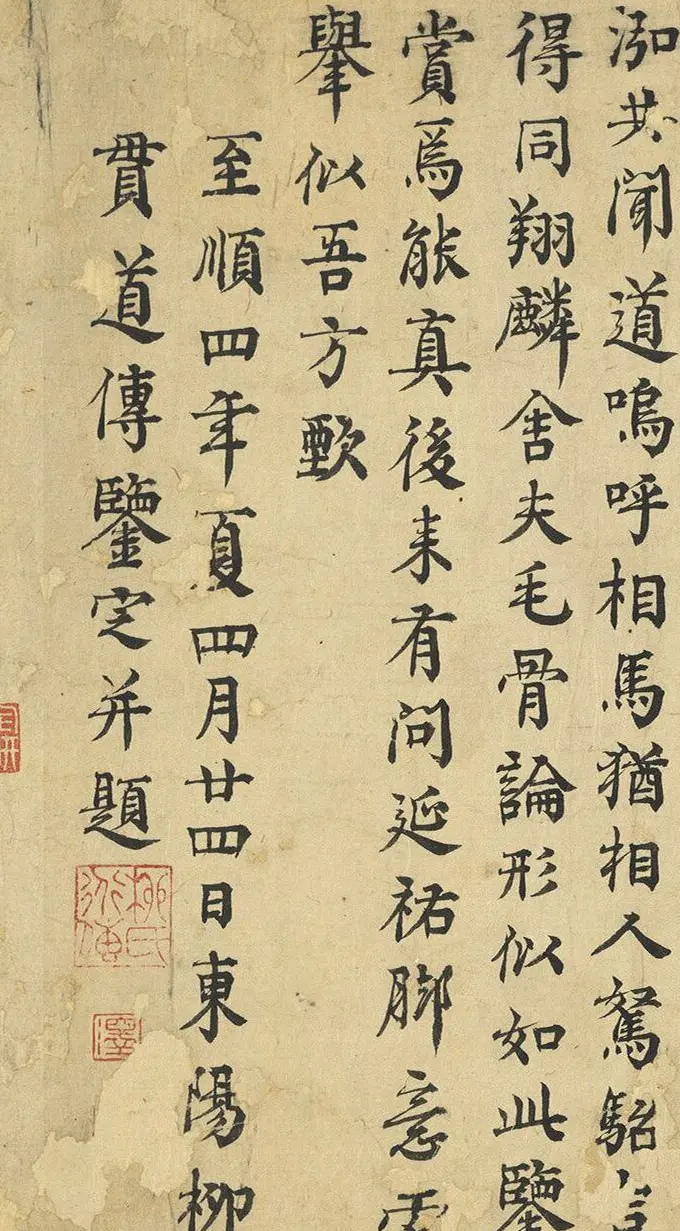 泓共聞道嗚呼相馬猶相人駑駘
得同翔麟舍夫毛骨論形似如此鑒
賞焉能真後来有問延祐脚意
舉似吾方歅
至順四年夏四月廿四日東陽柳
貫道傳鑒定并題
柳氏道傳